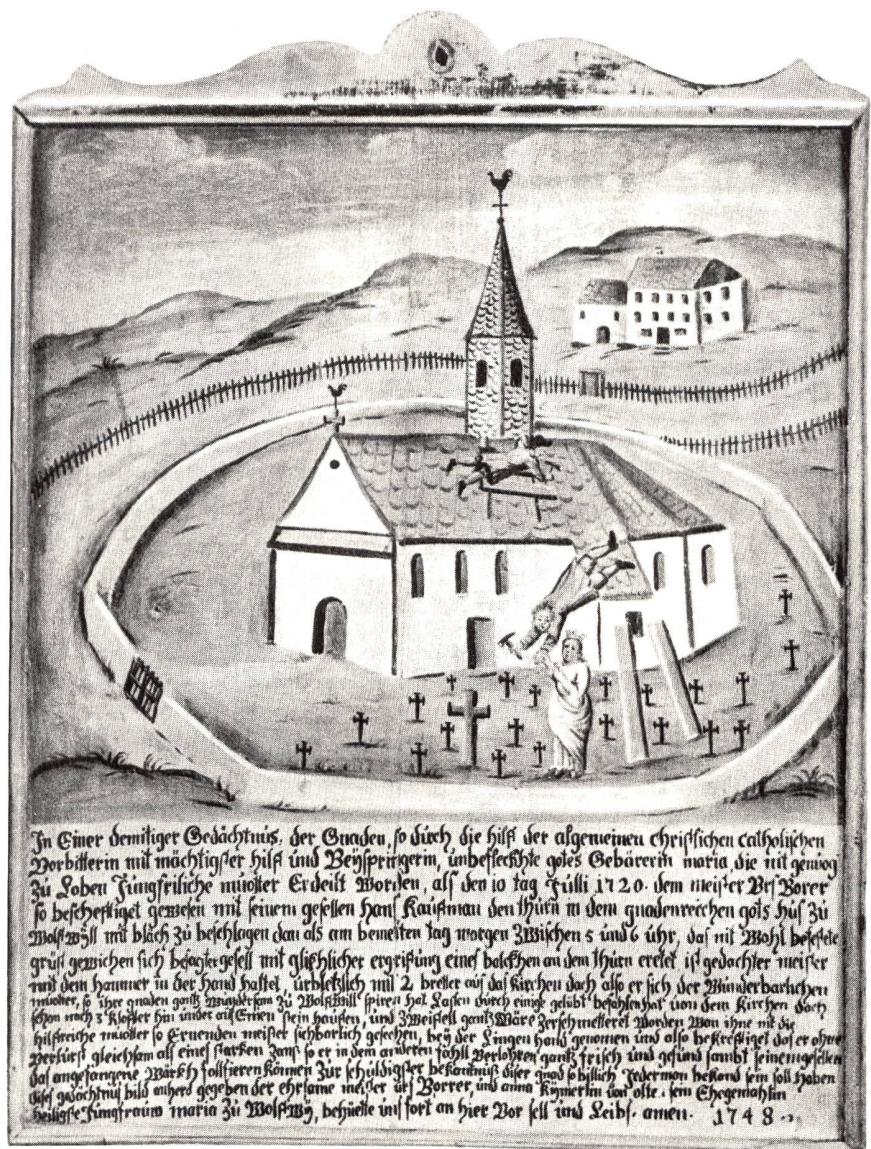 In Einer demitiger Gedächtnus, der Gnaden, so durch die hilf der algemeinen christlichen catholischen
Vorbitterin mit mächtigster hilf und Beyspringerin, unbefleckhte gotes Gebärerin maria, die nit genuog
Zu Loben Jungfriliche muotter Erdeilt Worden, als den 10 tag Julli 1720. dem meister Vrs Borer
so bescheftiget gewesen mit seinem gesellen Hans Kaufman den thurn in dem gnadenreichen gots hus Zu
Wolfwyll mit bläch Zu beschlagen dan als am bemelten tag morgen Zwischen 5 und 6 uhr, das nit Wohl befestete
grüst gewichen sich besagter gesell mit glichlicher ergrifung eines balckhen an dem thurn eretet ist gedachter meister
mit dem hammer in der hand haltet, urbletzlich mit 2 bretter auf das kirchen dach also er sich der Wunderbarlichen
muotter, so ihre gnaden gantz Wundersam Zu Wolfwill spiren hat Lasten durch einige gelübt befohlen hat von dem Kirchen dach
schon noch 3 Klofter hin under auf Einen stein hauffen, und Zweifell gantz Wäre Zerschmetteret Worden Wan ihne nit die
hilfreiche muotter so Eruenden meister sichbarlich gesechen, bey der Lingen hand genomen und also bekreftiget das er ohne
Verlurst gleichsam als eines starken Zans so er in dem anderen fahll Verlohren gantz frisch und gesund sambt seinem gesellen
das angefangene Wärkh follfieren Können Zur schuldigster bekantnus diser gnad so billich Jederman bekand sein soll Haben
dises gedächtnus bild anherd gegeben der ehrsame meister urs Borrer, und anna Kymerlin von olte. sein Ehegemahlin
heiligste Jungfrauw maria Zu Wolfwÿ, behüette uns fort an hier Vor sell und Leibs. amen. 1748